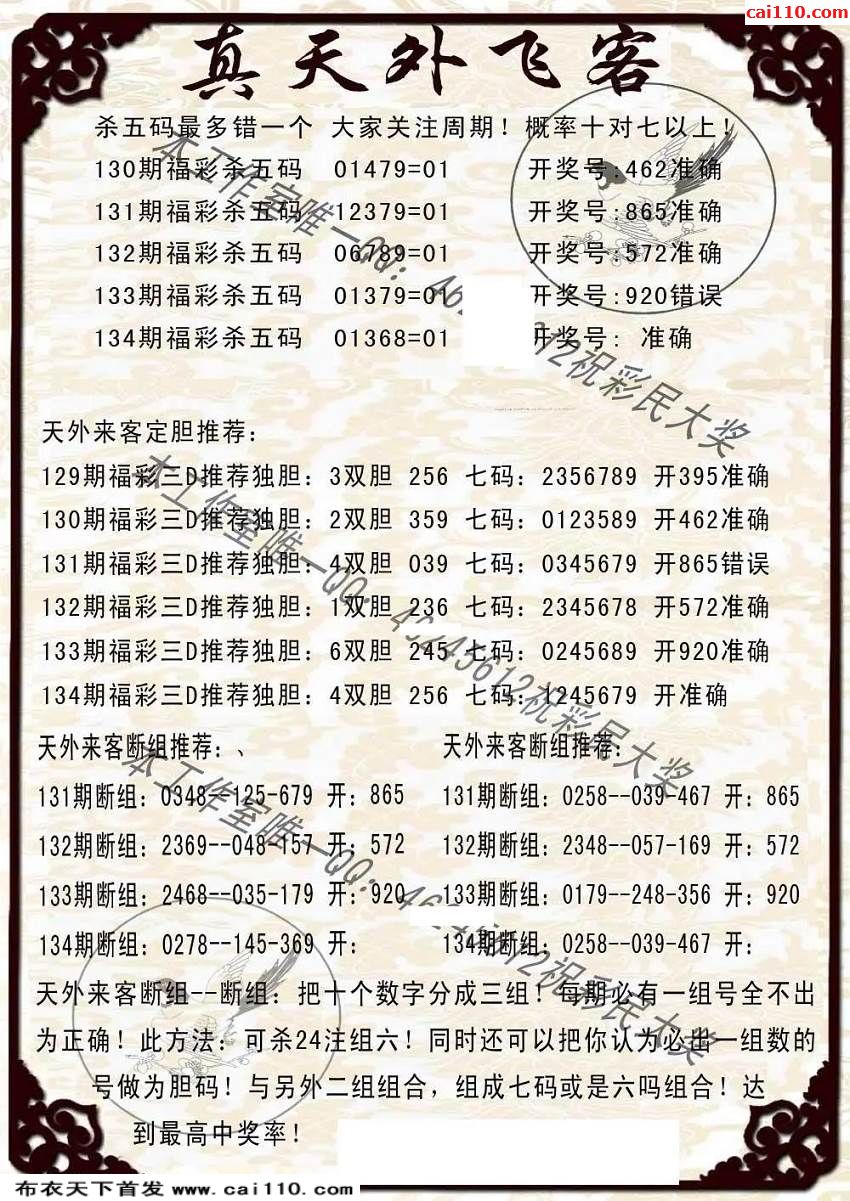 cai110.com
真天外飞客
杀五码最多错一个 大家关注周期！概率十对七以上！
130期福彩杀五码 01479=01 开奖号:462准确
131期福彩杀五码 12379=01 开奖号:865准确
132期福彩杀五码 06789=01 开奖号:572准确
133期福彩杀五码 01379=01 开奖号:920错误
134期福彩杀五码 01368=01 开奖号: 准确
天外来客定胆推荐：
129期福彩三D推荐独胆：3双胆 256 七码：2356789 开395准确
130期福彩三D推荐独胆：2双胆 359 七码：0123589 开462准确
131期福彩三D推荐独胆：4双胆 039 七码：0345679 开865错误
132期福彩三D推荐独胆：1双胆 236 七码：2345678 开572准确
133期福彩三D推荐独胆：6双胆 245 七码：0245689 开920准确
134期福彩三D推荐独胆：4双胆 256 七码：1245679 开准确
天外来客断组推荐：、 天外来客断组推荐：
131期断组：0348--125-679 开：865 131期断组：0258--039-467 开：865
132期断组：2369--048-157 开：572 132期断组：2348--057-169 开：572
133期断组：2468--035-179 开：920 133期断组：0179--248-356 开：920
134期断组：0278--145-369 开： 134期断组：0258--039-467 开：
天外来客断组--断组：把十个数字分成三组！每期必有一组号全不出
为正确！此方法：可杀24注组六！同时还可以把你认为必出一组数的
号做为胆码！与另外二组组合，组成七码或是六吗组合！达
到最高中奖率！
本工作室唯一QQ：46 612祝彩民大奖
本工作室唯一QQ：46245612祝彩民大奖
本工作室唯一QQ：46245612祝彩民大奖
布衣天下首发 www.cai110.com